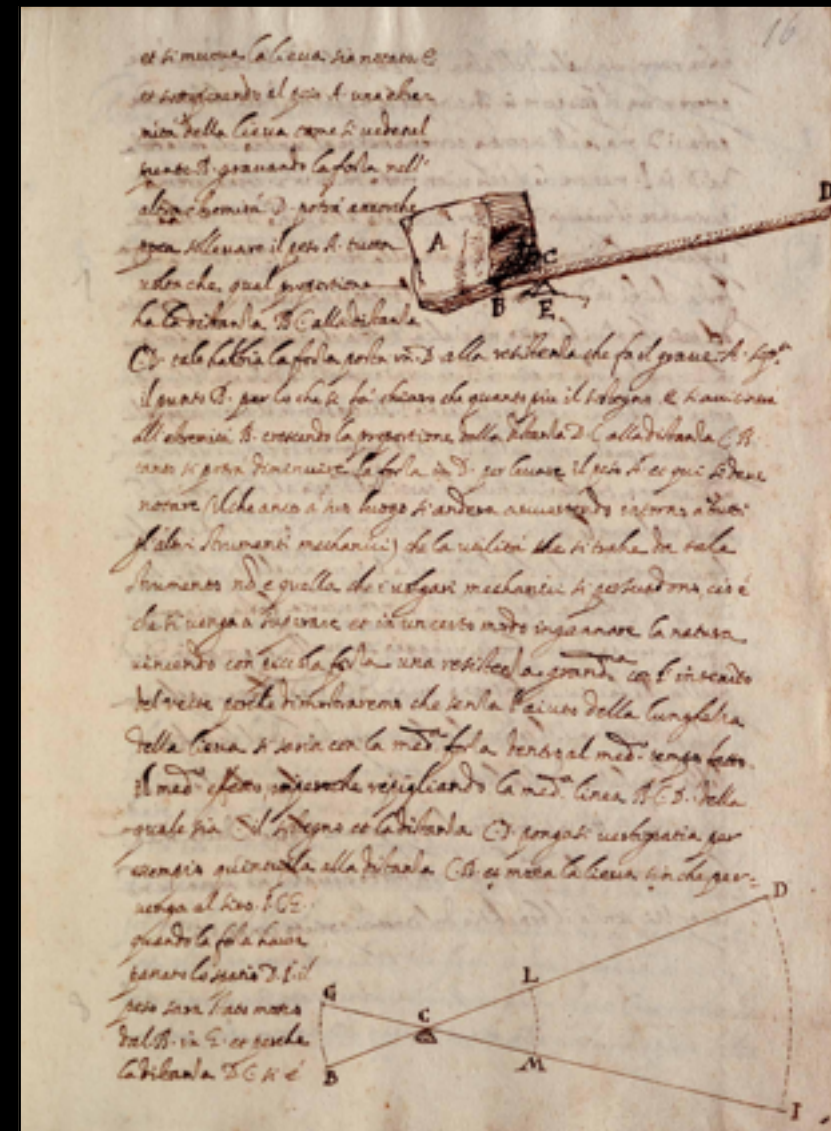 16
et si muova la lieva sia notato C
et sottoponendo al peso A. una estre-
mità della lieva come si vede nel
punto B. gravando la forza nell'
altra estremità D. potrà ancorche
poca sollevare il peso A. tutta
volta che, qual proportione
ha la distanza BC alla distanza
CD. tale habbia la forza posta in D alla resistenza che fa il grave A. sop.ª
il punto B. per lo che si fa chiaro che quanto piu il sostegno C si avvicinerà
all'estremità B. crescendo la proportione della distanza D C alla distanza C B.
tanto si potrà diminuire la forza in D. per levare il peso A. et qui si deve
notare (il che anco a suo luogo si anderà avvertendo intorno a tutti
gl'altri strumenti mechanici) che la utilità che si trahe da tale
strumento nō è quella che i volgari mechanici si persuadono, cio è
che si venga a superare et in un certo modo ingannare la natura
vincendo con piccola forza una resistenza grand.ma con l'
perche dimostraremo che senza l'aiuto della lunghezza
della lieva si saria con la med.ª forza dentro al med.º tempo fatto
il med.º effetto, imperoche repigliando la med.ª linea B.C.D. della
quale sia C il sostegno et la distanza CD. pongasi per
esempio quintupla alla distanza CB. et mossa la lieva sin che per-
venga al sito I.C.G.
quando la forza haverà
passato lo spatio D.I. il
peso sarà stato mosso
dal B. in G. et perche
la distanza DC si è
A
B
C
D
E
G
C
L
D
B
M
I